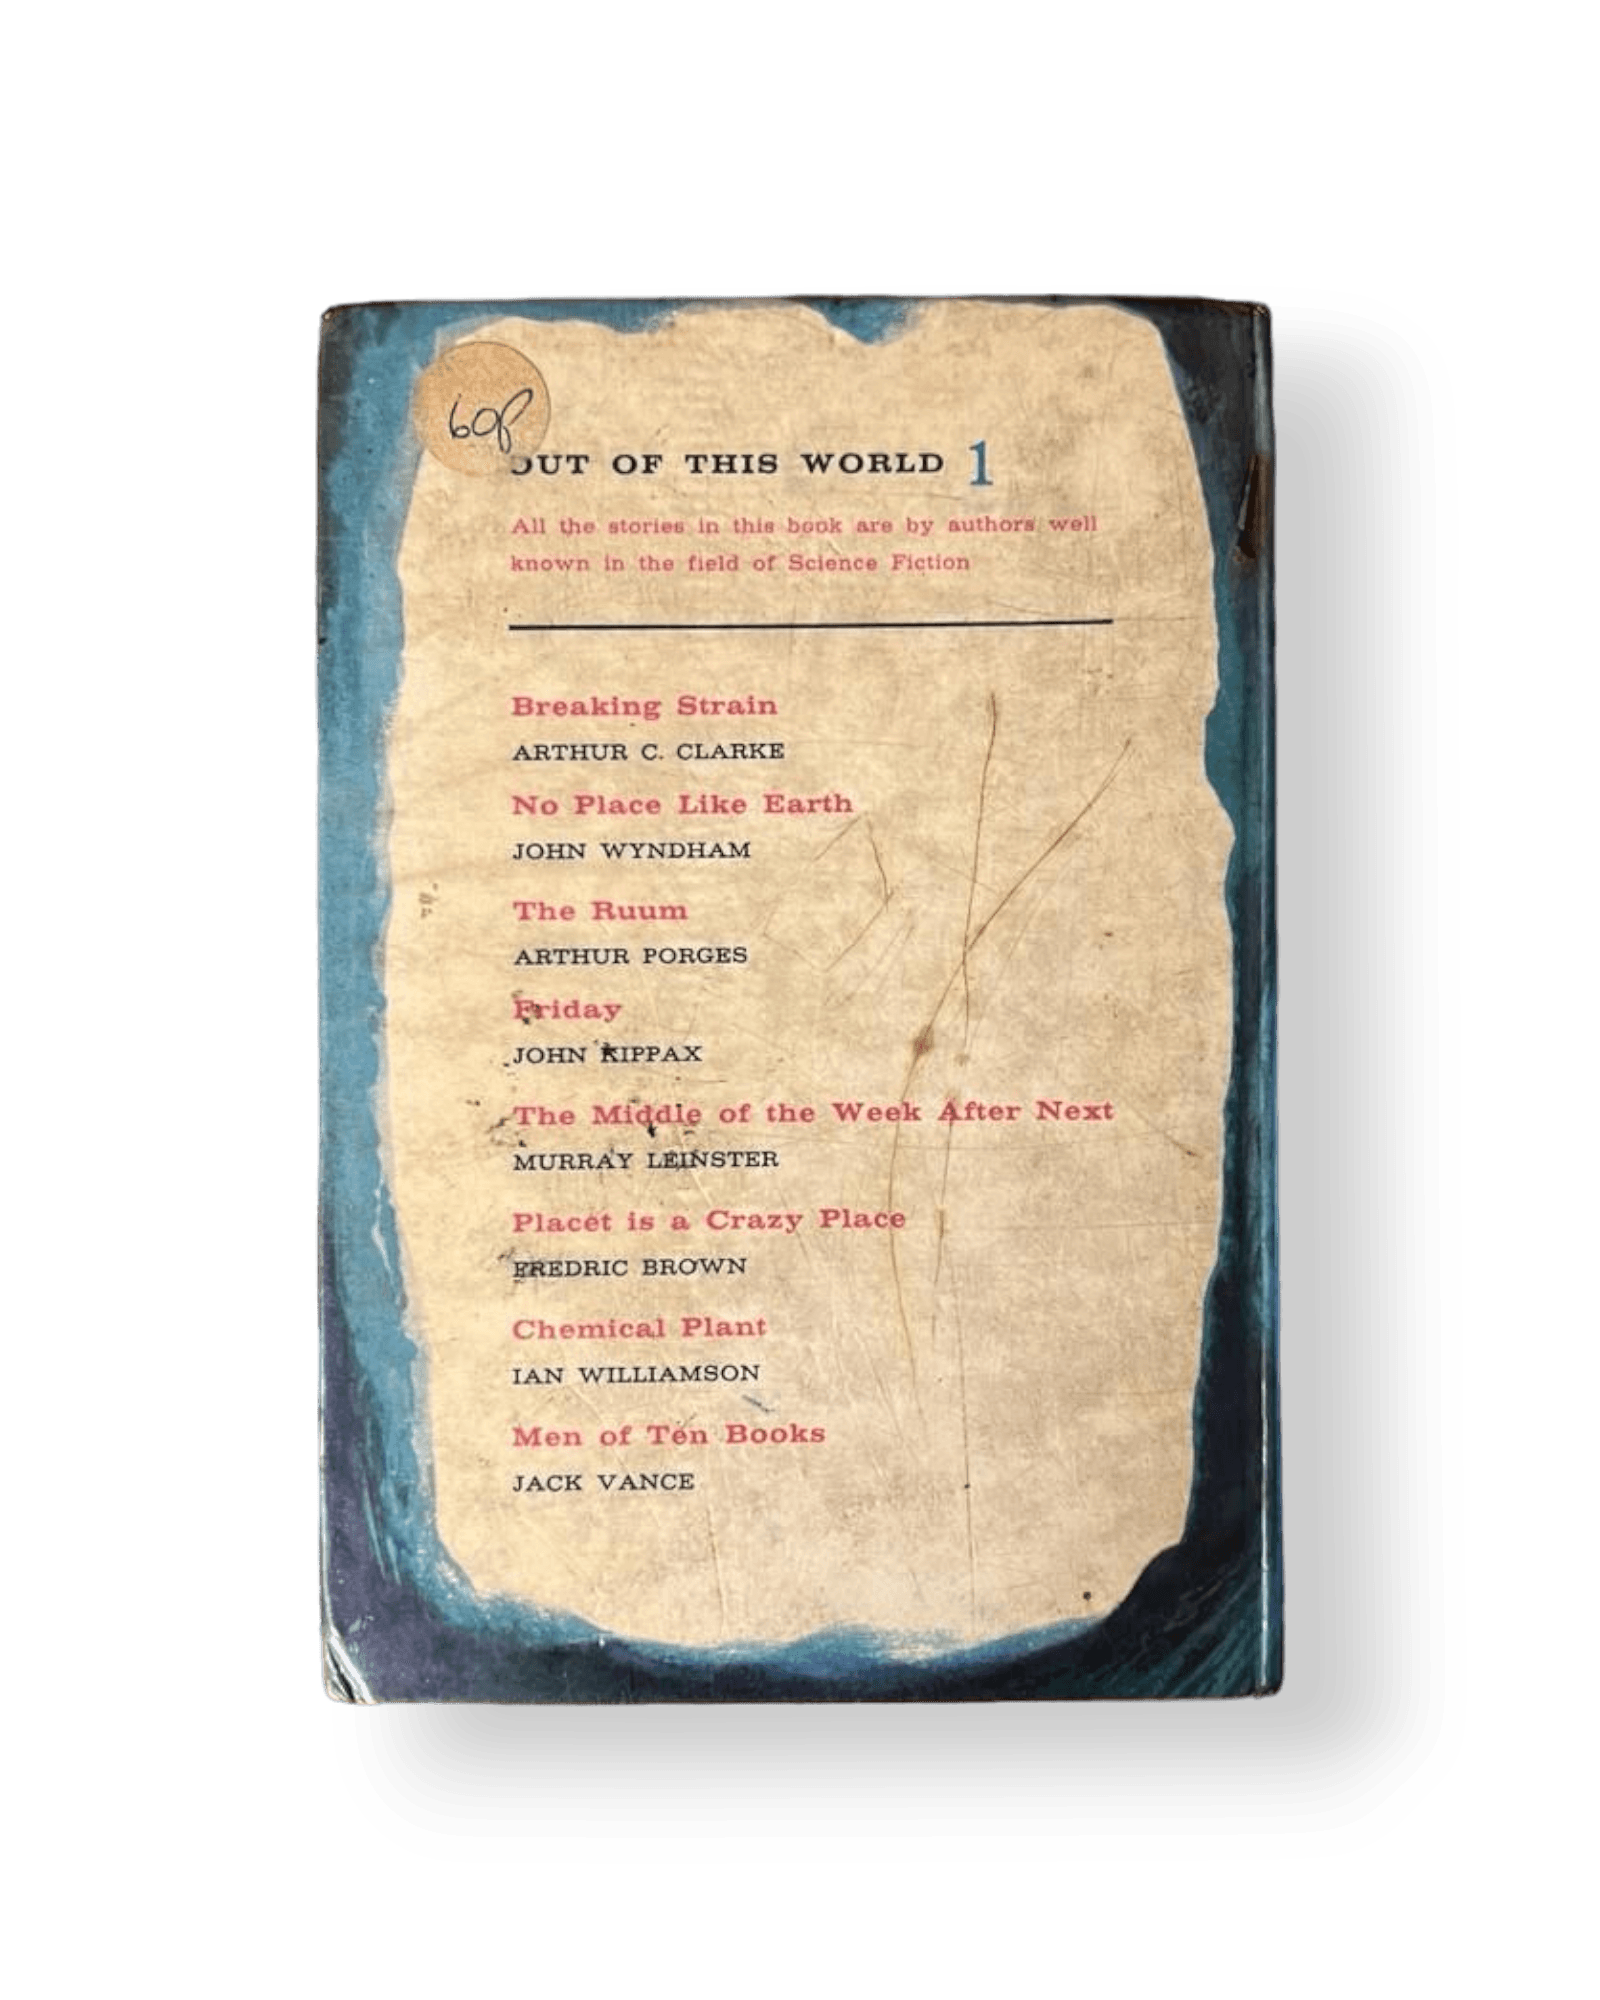 60p
OUT OF THIS WORLD 1
All the stories in this book are by authors well
known in the field of Science Fiction
Breaking Strain
ARTHUR C. CLARKE
No Place Like Earth
JOHN WYNDHAM
The Ruum
ARTHUR PORGES
Friday
JOHN KIPPAX
The Middle of the Week After Next
MURRAY LEINSTER
Placet is a Crazy Place
FREDRIC BROWN
Chemical Plant
IAN WILLIAMSON
Men of Ten Books
JACK VANCE